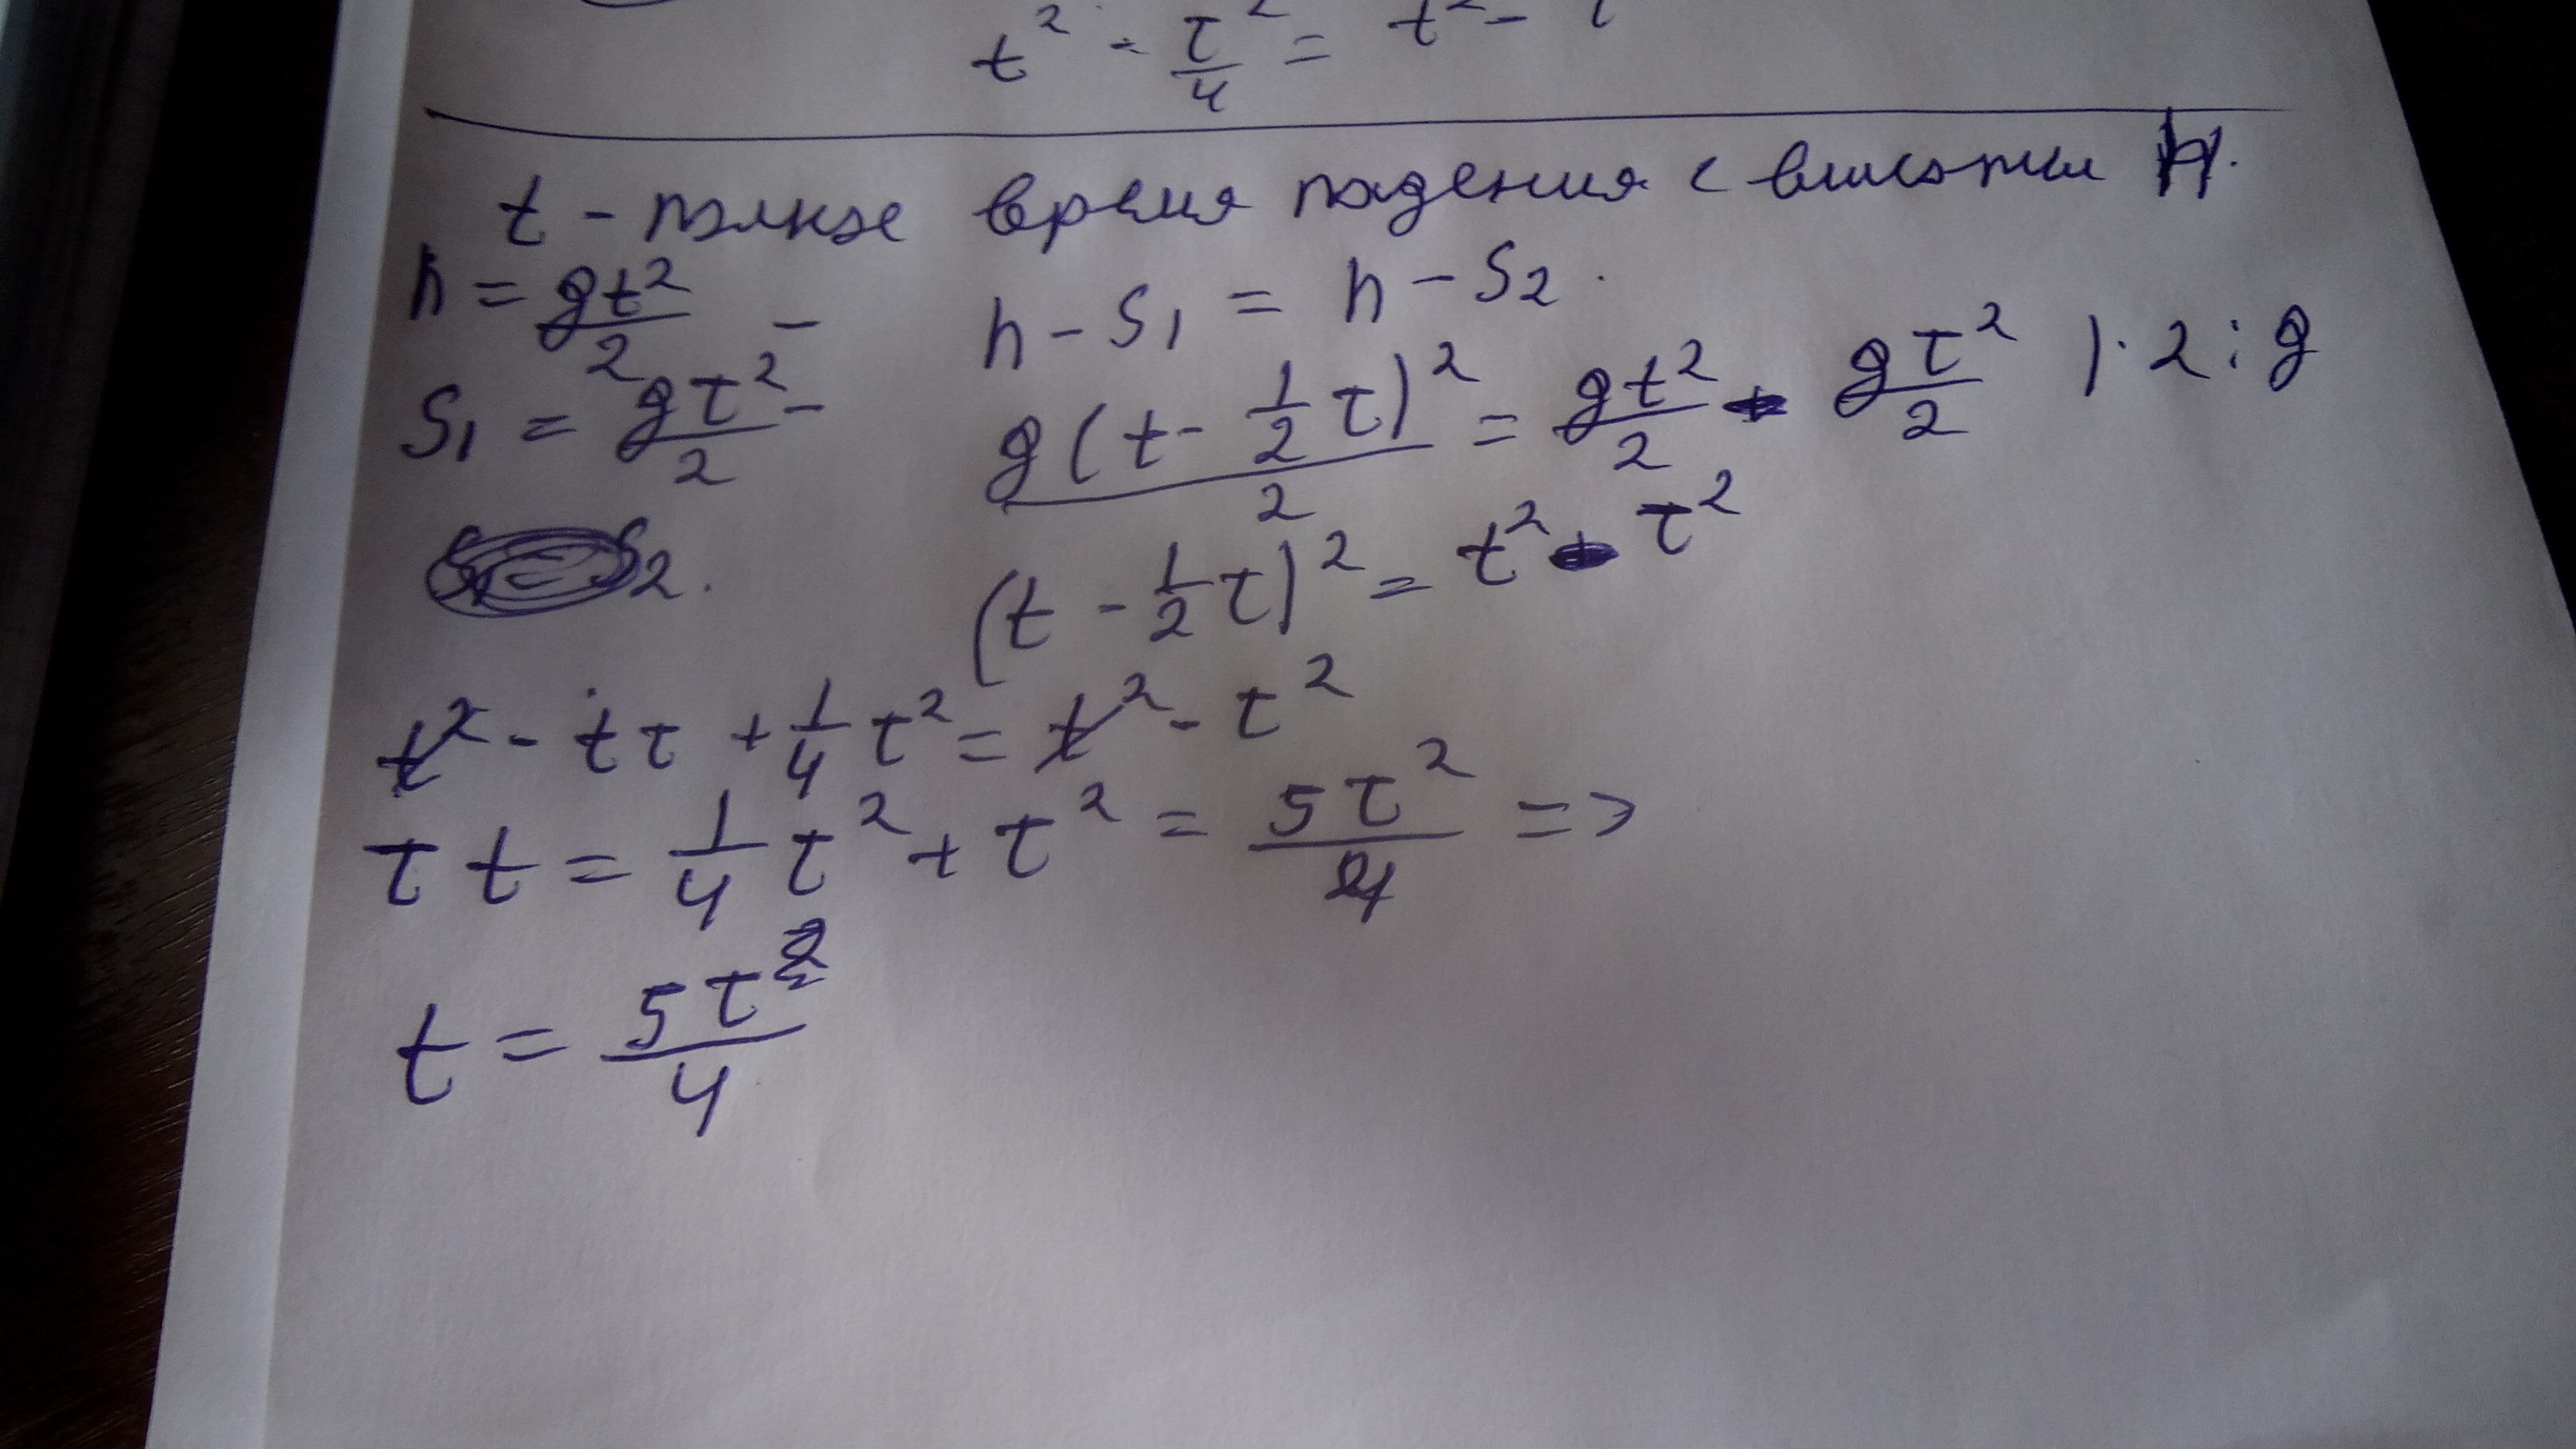 t² - τ²/4 = t² -
t - полное время падения с высоты H.
h = gt²/2 -
h - S₁ = h - S₂.
S₁ = gτ²/2 -
g(t - 1/2 τ)²/2 = gt²/2 - gτ²/2 |·2:g
S₂.
(t - 1/2 τ)² = t² - τ²
t² - tτ + 1/4 τ² = t² - τ²
τt = 1/4 τ² + τ² = 5τ²/4 =>
t = 5τ/4